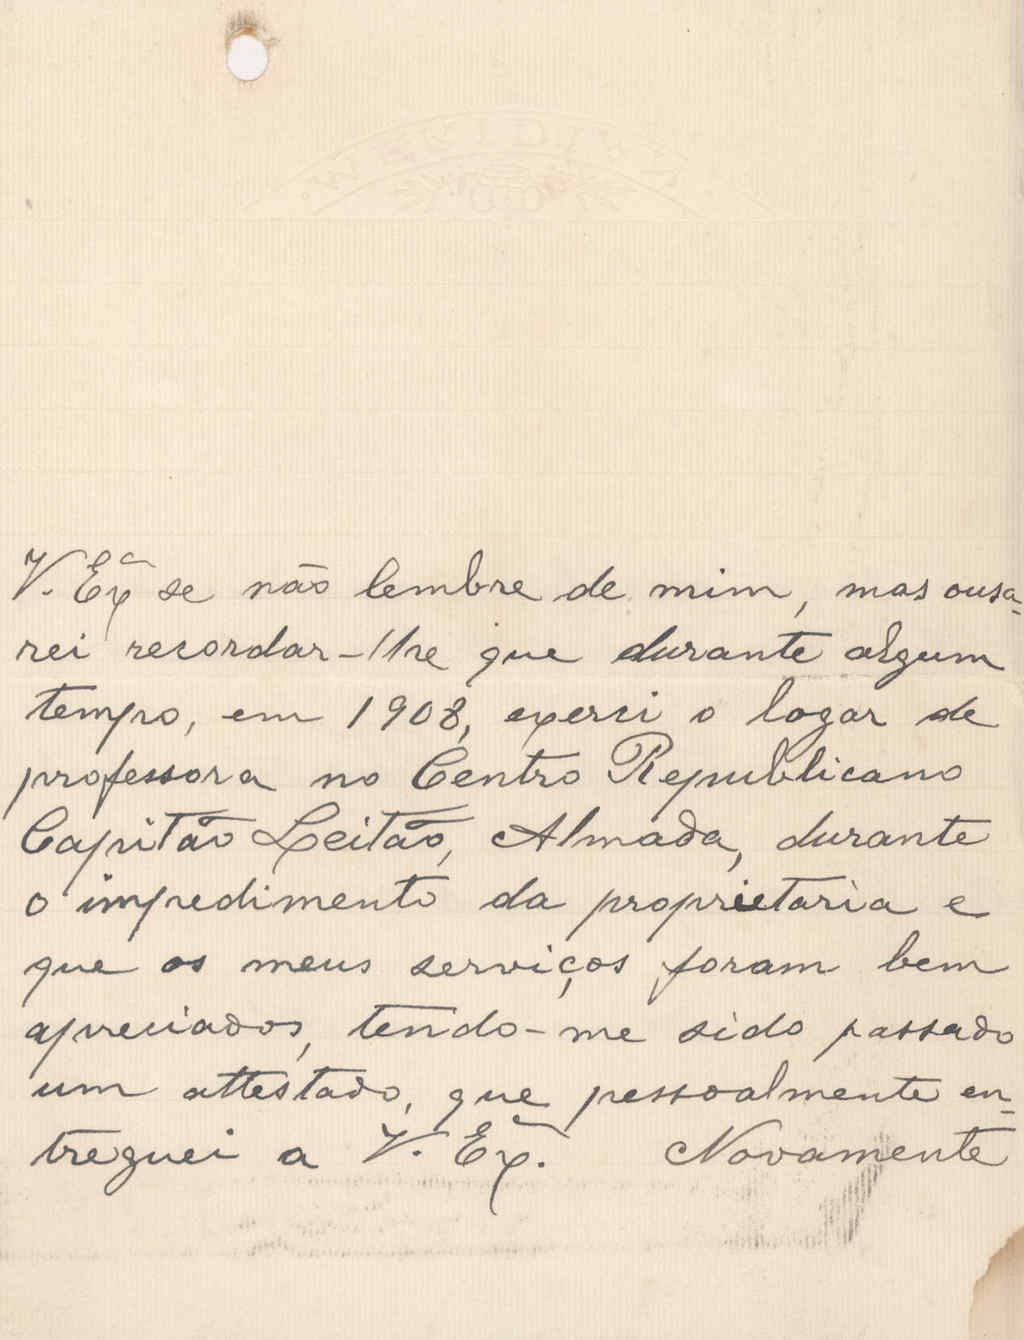 V. Exª se não lembre de mim, mas ousa-
rei recordar-lhe que durante algum
tempo, em 1908, exerci o logar de
professora no Centro Republicano
Capitão Leitão, Almada, durante
o impedimento da proprietaria e
que os meus serviços foram bem
apreciados, tendo-me sido passado
um attestado, que pessoalmente en-
treguei a V. Exª. Novamente